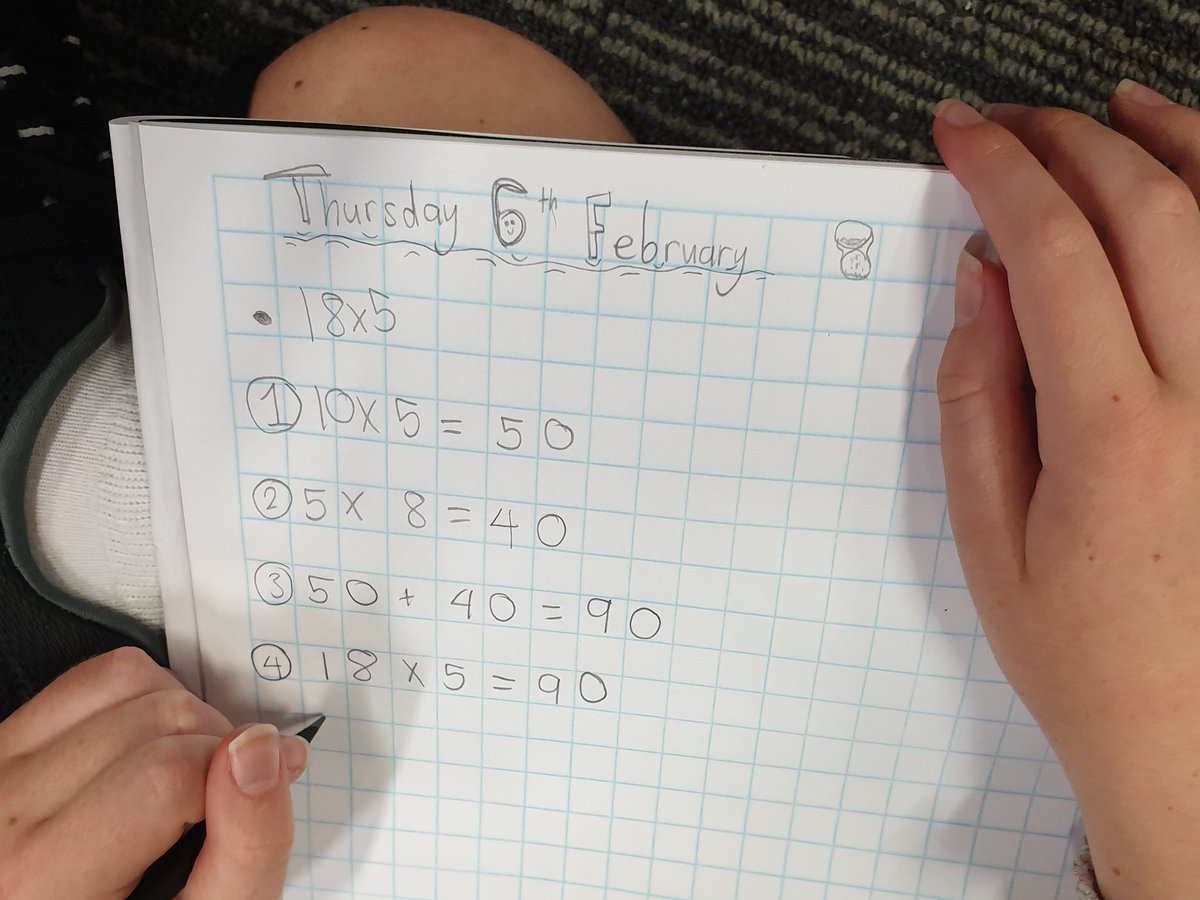 Thursday 6th February
• 18x5
① 10x5 = 50
② 5x 8 = 40
③ 50 + 40 = 90
④ 18 x 5 = 90